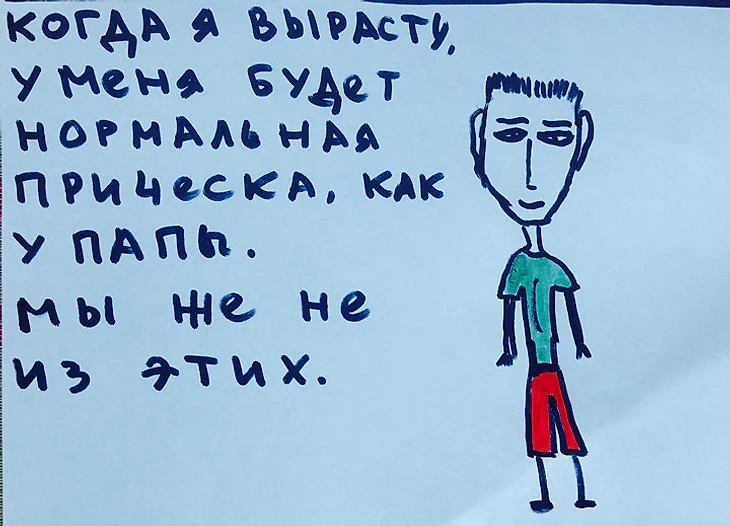 КОГДА Я ВЫРАСТУ,
У МЕНЯ БУДЕТ
НОРМАЛЬНАЯ
ПРИЧЕСКА, КАК
У ПАПЫ.
МЫ ЖЕ НЕ
ИЗ ЭТИХ.